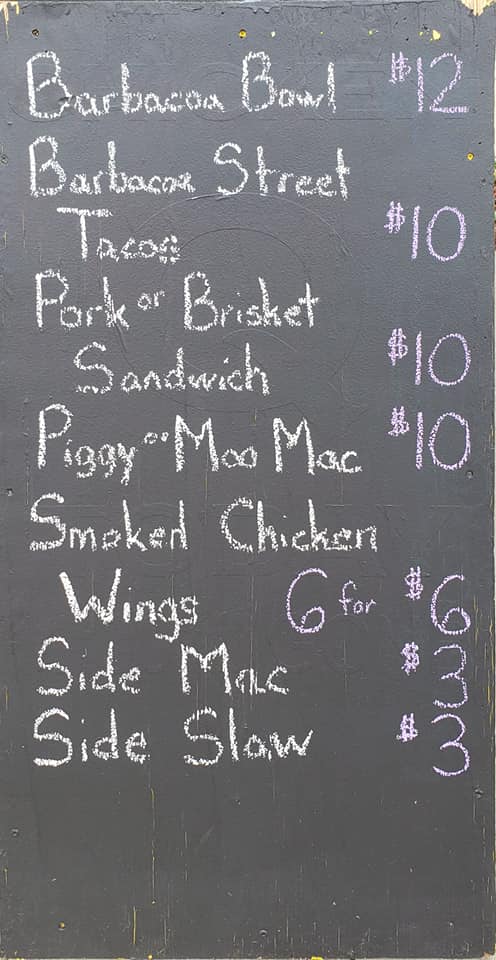 Barbacoa Bowl $12
Barbacoa Street
Tacos $10
Pork or Brisket
Sandwich $10
Piggy or Moo Mac $10
Smoked Chicken
Wings 6 for $6
Side Mac $3
Side Slaw $3